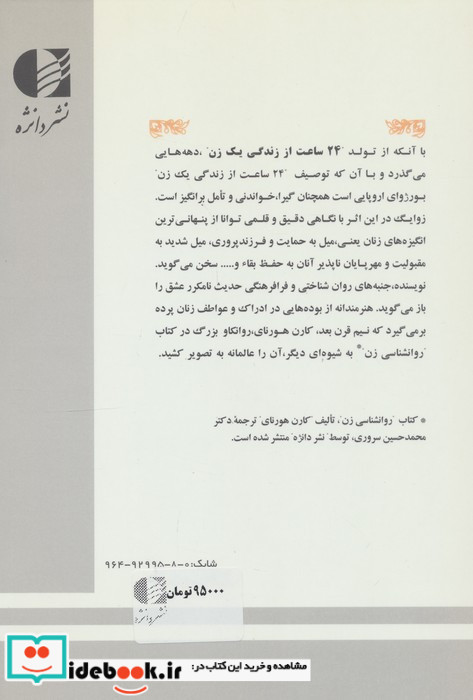 نشر دانژه
با آنکه از تولد "۲۴ ساعت از زندگی یک زن"، دهه‌هایی
می‌گذرد و با آن که توصیف "۲۴ ساعت از زندگی یک زن"
بورژوای اروپایی است همچنان گیرا، خواندنی و تأمل برانگیز است.
زوایگ در این اثر با نگاهی دقیق و قلمی توانا از پنهانی‌ترین
انگیزه‌های زنان یعنی، میل به حمایت و فرزندپروری، میل شدید به
مقبولیت و مهرپایان ناپذیر آنان به حفظ بقاء و..... سخن می‌گوید.
نویسنده، جنبه‌های روان شناختی و فرافرهنگی حدیث نامکرر عشق را
باز می‌گوید. هنرمندانه از بوده‌هایی در ادراک و عواطف زنان پرده
برمی‌گیرد که نیم قرن بعد، کارن هورنای، روانکاو بزرگ در کتاب
"روانشناسی زن"* به شیوه‌ای دیگر، آن را عالمانه به تصویر کشید.
* کتاب "روانشناسی زن"، تألیف "کارن هورنای" ترجمهٔ دکتر
محمدحسین سروری، توسط "نشر دانژه" منتشر شده است.
شابک: ۰-۸-۹۲۹۹۵-۹۶۴
۹۵۰۰۰ تومان
نشر دانژه
مشاهده و خرید این کتاب در:
idebook.ir